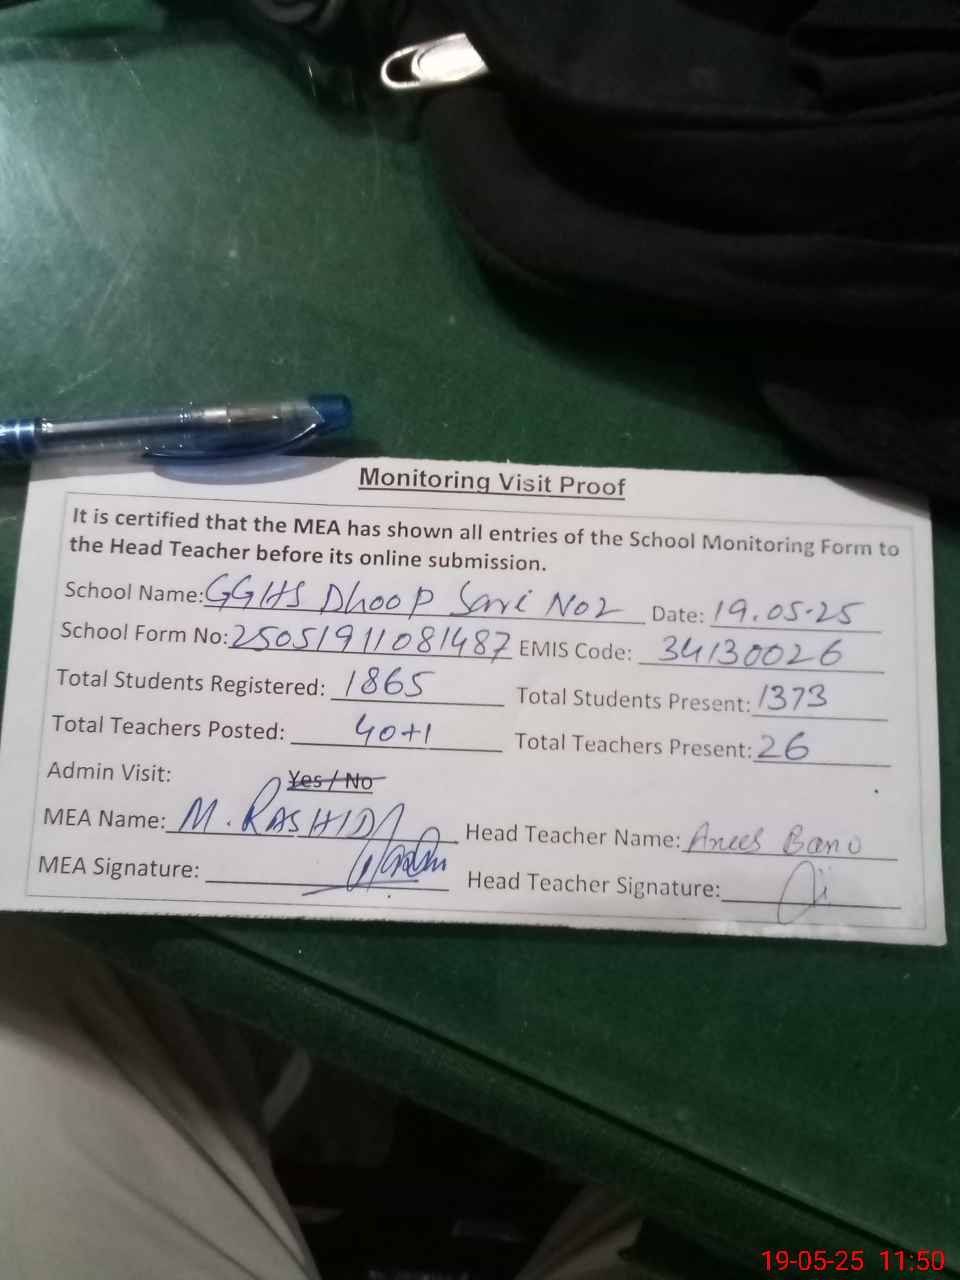 Monitoring Visit Proof
It is certified that the MEA has shown all entries of the School Monitoring Form to
the Head Teacher before its online submission.
School Name: GGHS Dhoop Sari No2 Date: 19.05.25
School Form No: 25051911081487 EMIS Code: 34130026
Total Students Registered: 1865 Total Students Present: 1373
Total Teachers Posted: 40+1 Total Teachers Present: 26
Admin Visit: Yes / No
MEA Name: M. RASHID Head Teacher Name: Anees Bano
MEA Signature: Head Teacher Signature:
19-05-25 11:50